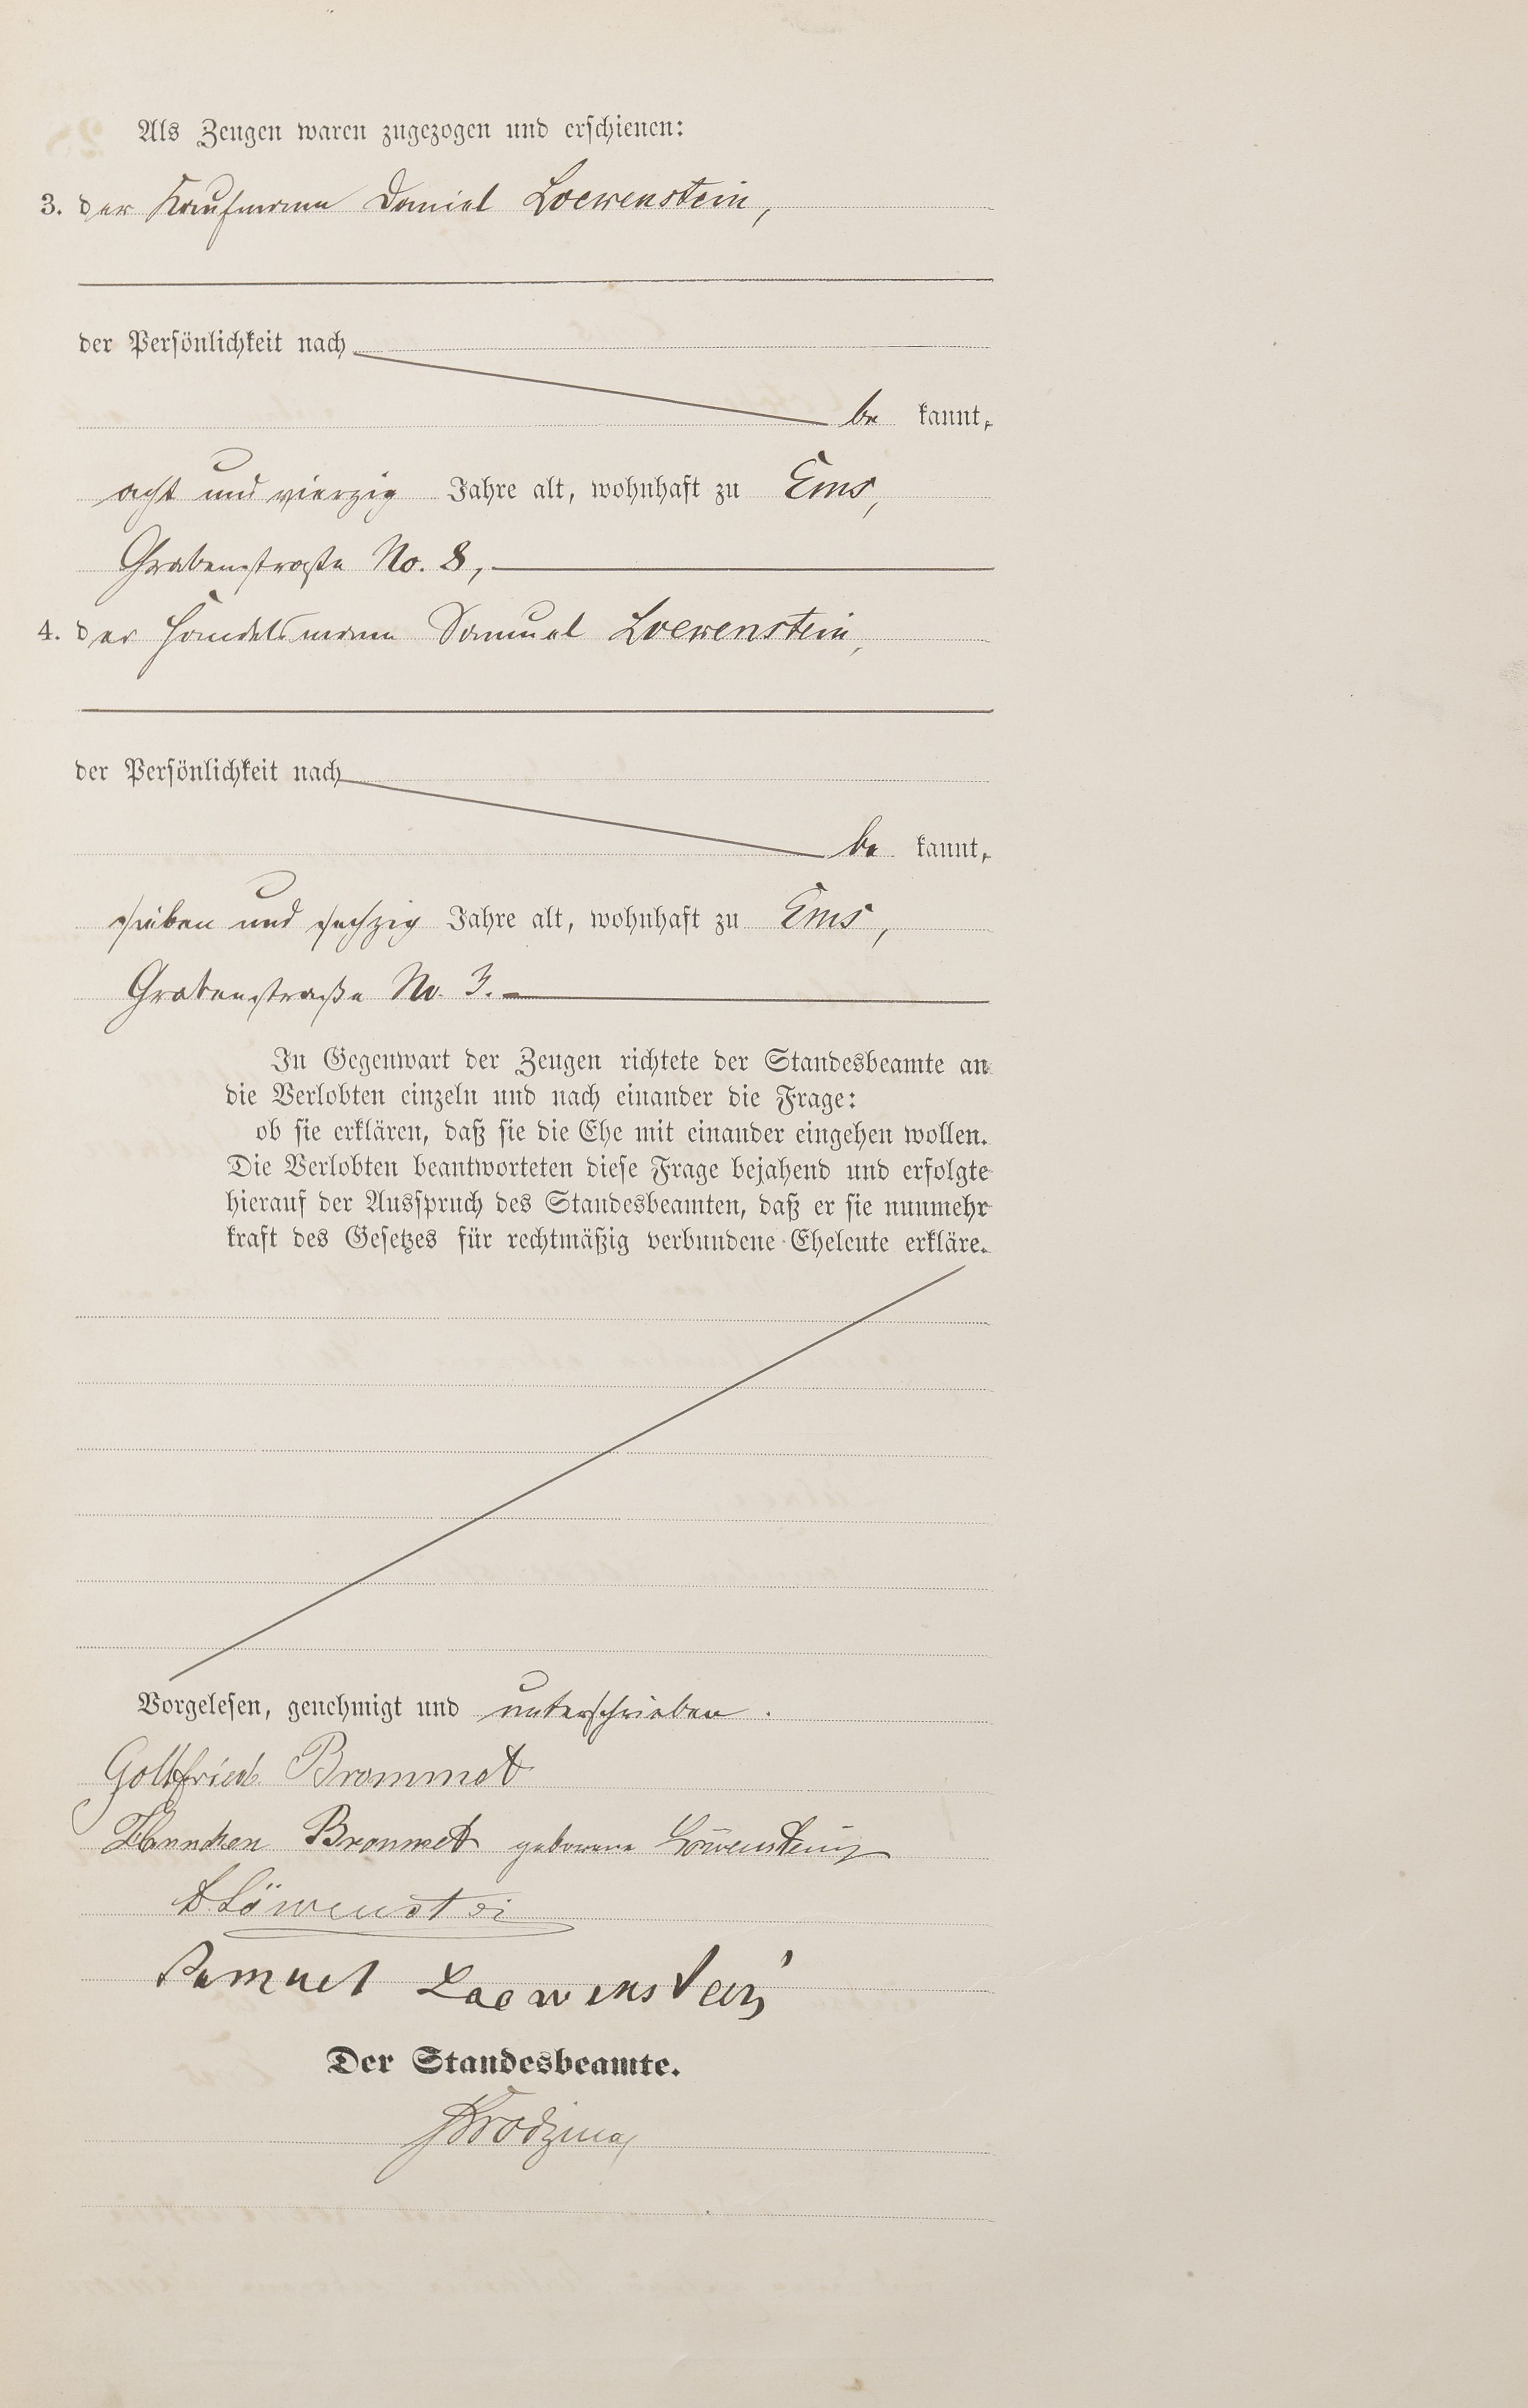 Als Zeugen waren zugezogen und erschienen:
3. der Kaufmann Daniel Loewenstein,
der Persönlichkeit nach
be kannt,
acht und vierzig Jahre alt, wohnhaft zu Ems,
Grabenstraße No. 8,
4. der Handelsmann Samuel Loewenstein,
der Persönlichkeit nach
be kannt,
sieben und sechzig Jahre alt, wohnhaft zu Ems,
Grabenstraße No. 3.
In Gegenwart der Zeugen richtete der Standesbeamte an
die Verlobten einzeln und nach einander die Frage:
ob sie erklären, daß sie die Ehe mit einander eingehen wollen.
Die Verlobten beantworteten diese Frage bejahend und erfolgte
hierauf der Ausspruch des Standesbeamten, daß er sie nunmehr
kraft des Gesetzes für rechtmäßig verbundene Eheleute erkläre.
Vorgelesen, genehmigt und unterschrieben.
Gottfried Brommet
Hannchen Brommet geborene Löwenstein
D. Löwenstei
Samuel Loewenstein
Der Standesbeamte.